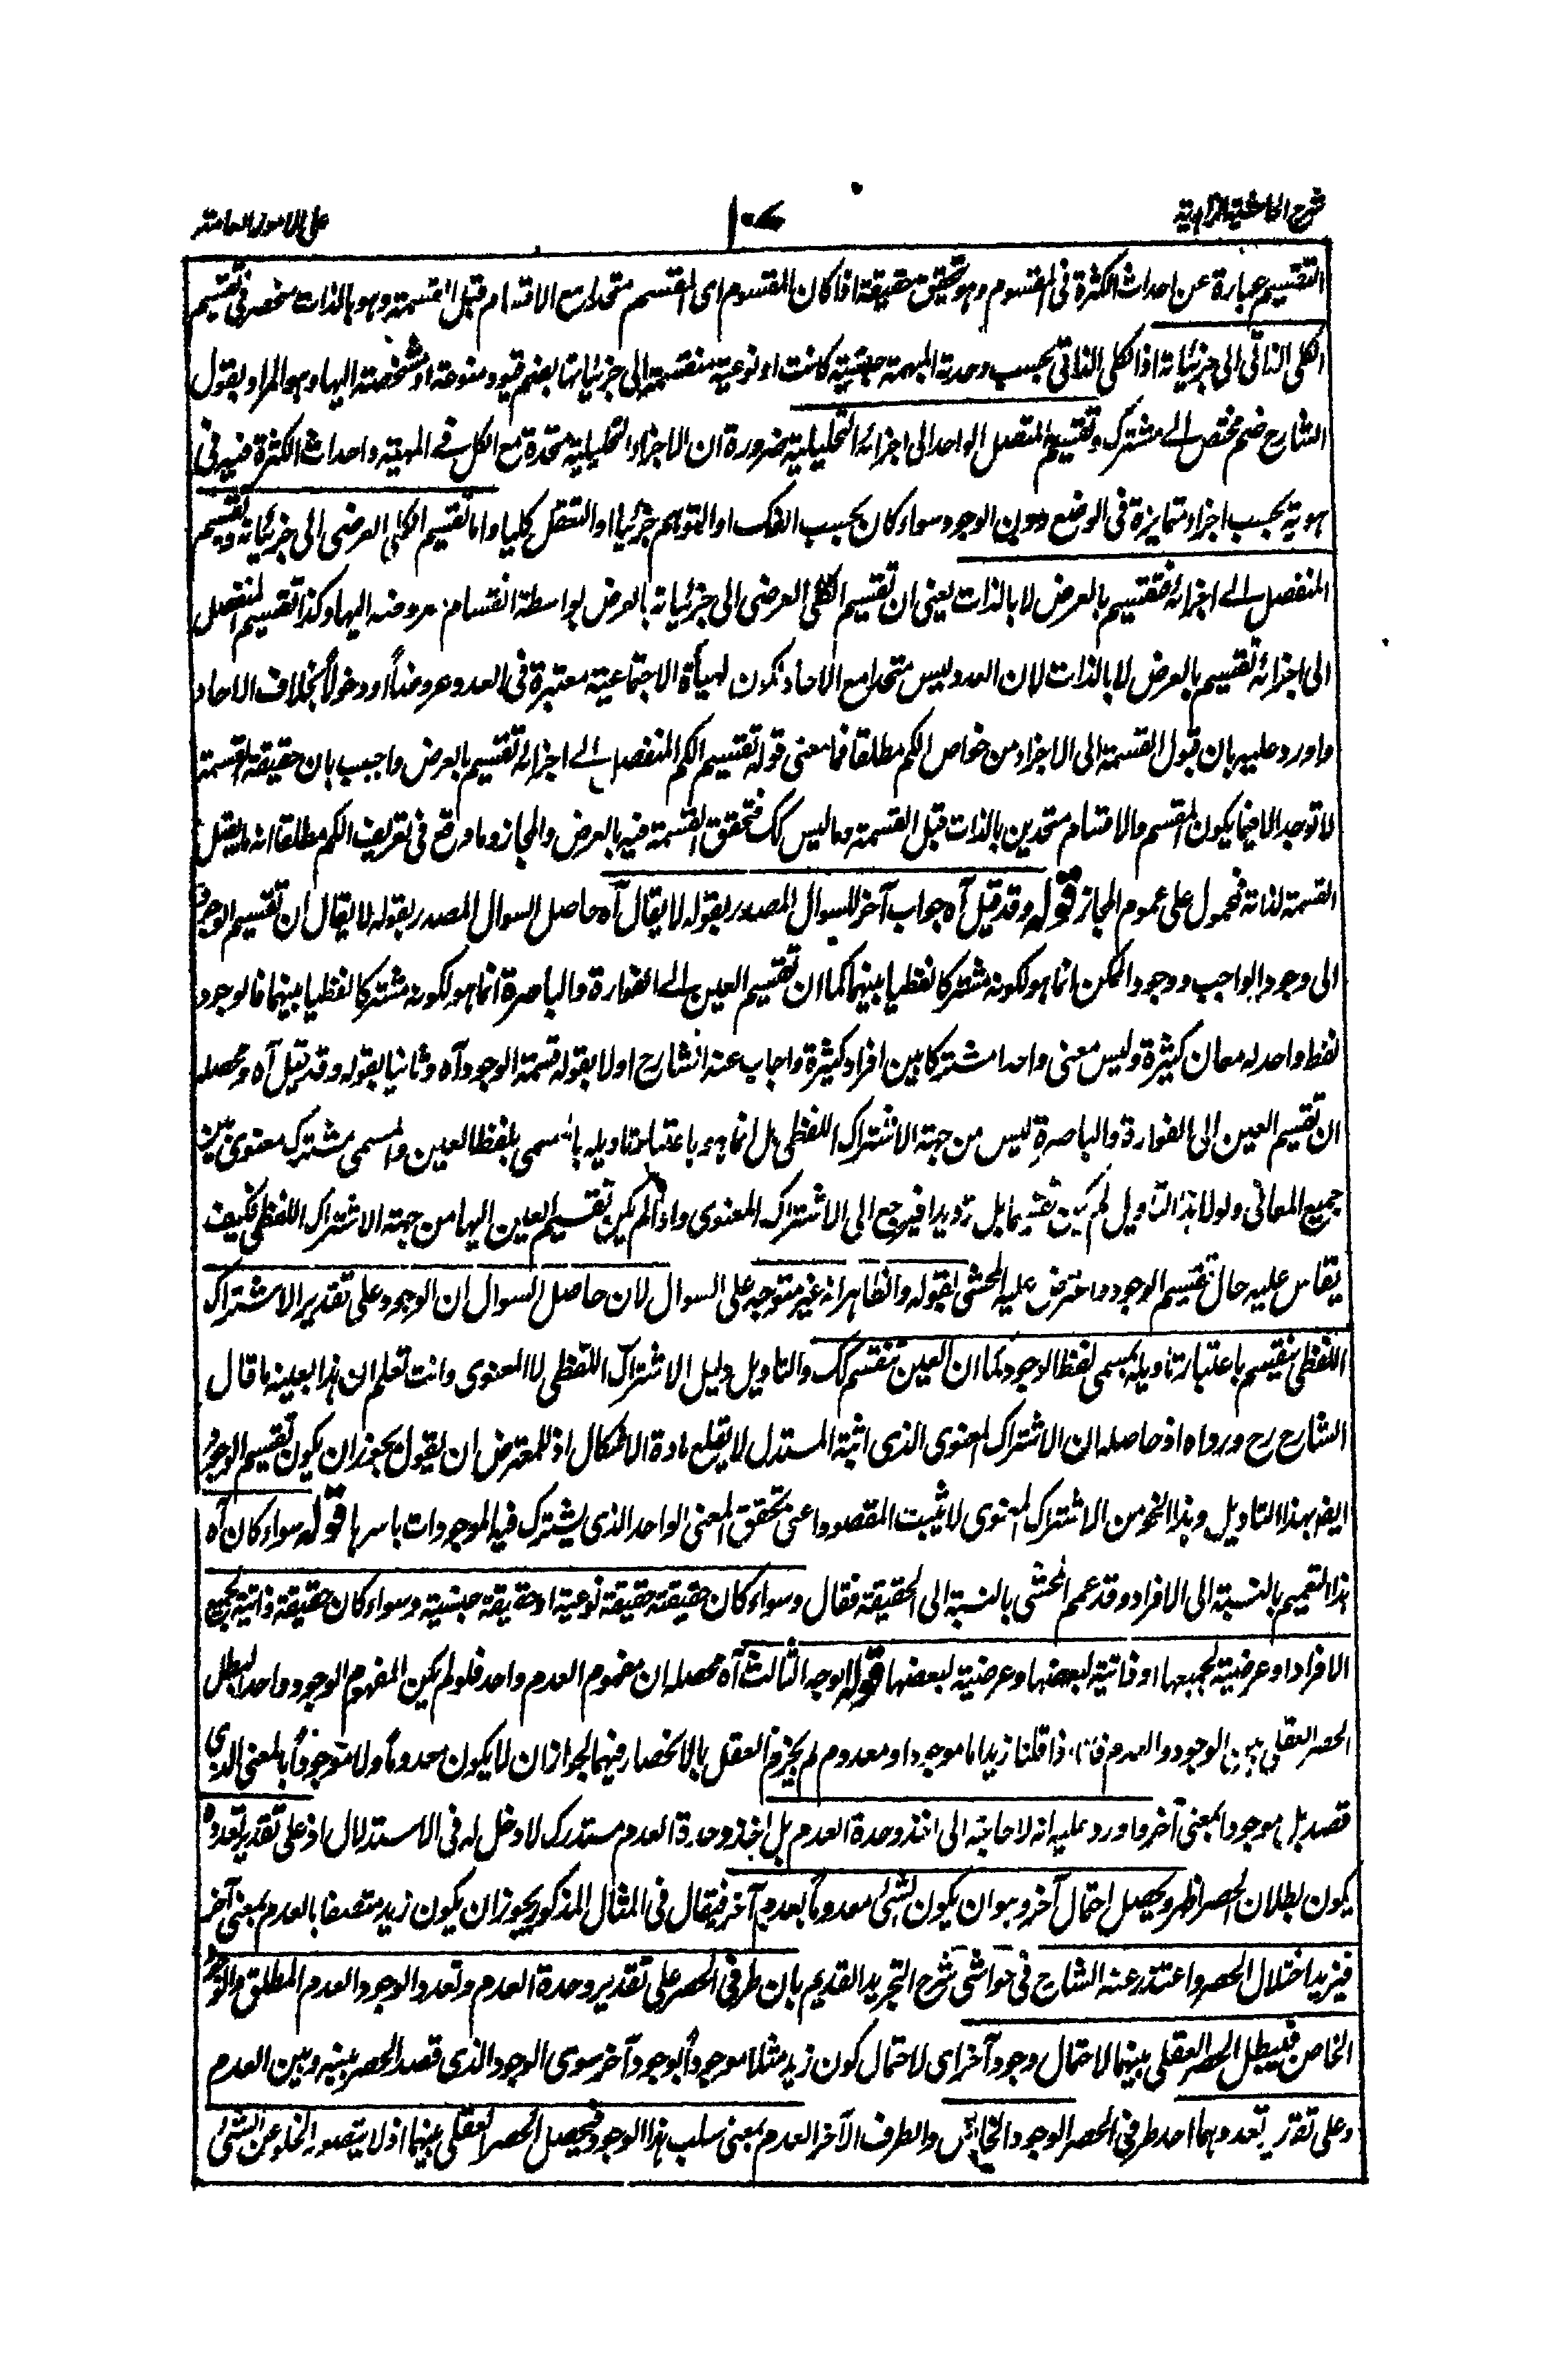 شرح الحاشية الزاهدية
١٠٧
على الامور العامة
التقسيم عبارة عن احداث الكثرة فى المقسوم وهو تحقيق حقيقة اذا كان المقسوم اى المقسم متحدا مع الاقسام قبل القسمة وهو بالذات منحصر فى تقسيم
الكلى الذاتى الى جزئياته اذ الكلى الذاتى بحسب وحدته المبهمة جنسية كانت او نوعية منقسمة الى جزئياتها بضم قيود منوعة او مشخصة اليها وهو المراد بقول
الشارح ضم مختص الے مشترك وتقسيم المتصل الواحد الى اجزائه التحليلية ضرورة ان الاجزاء التحليلية متحدة مع الكل فے المهية واحداث الكثرة فيه فى
هويته بحسب اجزاء متمايزة فى الوضع دون الوجود سواء كان بحسب الفك او التوهم جزئيا او التعقل كليا واما تقسيم الكلى العرضى الى جزئياته وتقسيم
المنفصل الے اجزائه فتقسيم بالعرض لا بالذات يعنى ان تقسيم الكلى العرضى الى جزئياته بالعرض بواسطة انقسام معروضه اليها وكذا تقسيم المنفصل
الى اجزائه تقسيم بالعرض لا بالذات لان العدد ليس متحدا مع الآحاد لكون الهيأة الاجتماعية معتبرة فى العدد عروضاً او دخولاً بخلاف الآحاد
واورد عليه بان قبول القسمة الى الاجزاء من خواص الكم مطلقا فما معنى قوله تقسيم الكم المنفصل الے اجزائه تقسيم بالعرض واجيب بان حقيقة القسمة
لا توجد الا فيما يكون المقسم والاقسام متحدين بالذات قبل القسمة وما ليس كك فتحقق القسمة فيه بالعرض والمجاز وما وقع فى تعريف الكم مطلقا انه ما يقبل
القسمة لذاته فمحمول على عموم المجاز قوله وقد قيل آه جواب آخر للسوال المصدر بقوله لا يقال آه حاصل السوال المصدر بقوله لا يقال ان تقسيم الوجود
الى وجود الواجب ووجود الممكن انما هو لكونه مشتركا لفظيا بينهما كما ان تقسيم العين الے الفوارة والباصرة انما هو لكونه مشتركا لفظيا بينهما فالوجود
لفظ واحد له معان كثيرة وليس معنى واحدا مشتركا بين افراد كثيرة واجاب عنه الشارح اولا بقوله قسمة الوجود آه وثانيا بقوله وقد قيل آه ومحصله
ان تقسيم العين الى الفوارة والباصرة ليس من جهة الاشتراك اللفظى بل انما هو باعتبار تاويله بالمسمى بلفظ العين والمسمى مشترك معنوى بين
جميع المعانى ولولا هذا التاويل لم يكن تقسيما بل ترديدا فيرجع الى الاشتراك المعنوى واذا لم يكن تقسيم العين اليها من جهة الاشتراك اللفظى فكيف
يقاس عليه حال تقسيم الوجود واعترض عليه المحشى بقوله والظاهر انه غير متوجه على السوال لان حاصل السوال ان الوجود على تقدير الاشتراك
اللفظى ينقسم باعتبار تاويله بمسمى لفظ الوجود كما ان العين تنقسم كك والتاويل دليل الاشتراك اللفظى لا المعنوى وانت تعلم ان هذا بعينه ما قال
الشارح رح ورواه اذ حاصله ان الاشتراك المعنوى الذى اثبته المستدل لا يقلع مادة الاشكال اذ للمعترض ان يقول يجوز ان يكون تقسيم الوجود
ايضا بهذا التاويل وهذا النحو من الاشتراك المعنوى لا يثبت المقصود اعنى تحقق المعنى الواحد الذى يشترك فيه الموجودات باسرها قوله سواء كان آه
هذا التعميم بالنسبة الى الافراد وقد عمم المحشى بالنسبة الى الحقيقة فقال وسواء كان حقيقته حقيقة نوعية او حقيقة جنسية وسواء كان حقيقة ذاتية لجميع
الافراد او عرضية لجميعها او ذاتية لبعضها وعرضية لبعضها قوله الوجه الثالث آه محصله ان مفهوم العدم واحد فلو لم يكن المفهوم الوجود واحدا لبطل
الحصر العقلى بين الوجود والعدم فانا اذا قلنا زيد اما موجود او معدوم لم يجزم العقل بالانحصار فيهما لجواز ان لا يكون معدوماً ولا موجوداً بالمعنى الذى
قصد بل موجودا بمعنى آخر واورد عليه انه لا حاجة الى اخذ وحدة العدم بل اخذ وحدة العدم مستدرك لا دخل له فى الاستدلال اذ على تقدير تعدده
يكون بطلان الحصر اظهر ويحصل احتمال آخر وهو ان يكون الشئ معدوماً بعدم آخر فيقال فى المثال المذكور يجوز ان يكون زيد متصفا بالعدم بمعنى آخر
فيزيد اختلال الحصر واعتذر عنه الشارح فى حواشى شرح التجريد القديم بان طرفى الحصر على تقدير وحدة العدم وتعدد الوجود العدم المطلق والوجود
الخاص فيبطل الحصر العقلى بينهما لاحتمال وجود آخر اى لاحتمال كون زيد مثلا موجوداً بوجود آخر سوى الوجود الذى قصد الحصر بينه وبين العدم
وعلى تقدير تعددهما احد طرفى الحصر الوجود الخاص والطرف الآخر العدم بمعنى سلب هذا الوجود فيحصل الحصر العقلى بينهما اذ لا يتصور الخلو عن الشئ